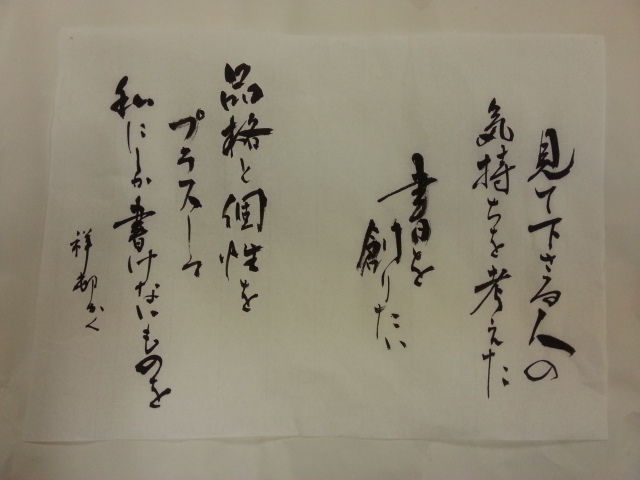 見て下さる人の
気持ちを考えた
書を
創りたい
品格と個性を
プラスして
私にしか書けないものを
祥都かく